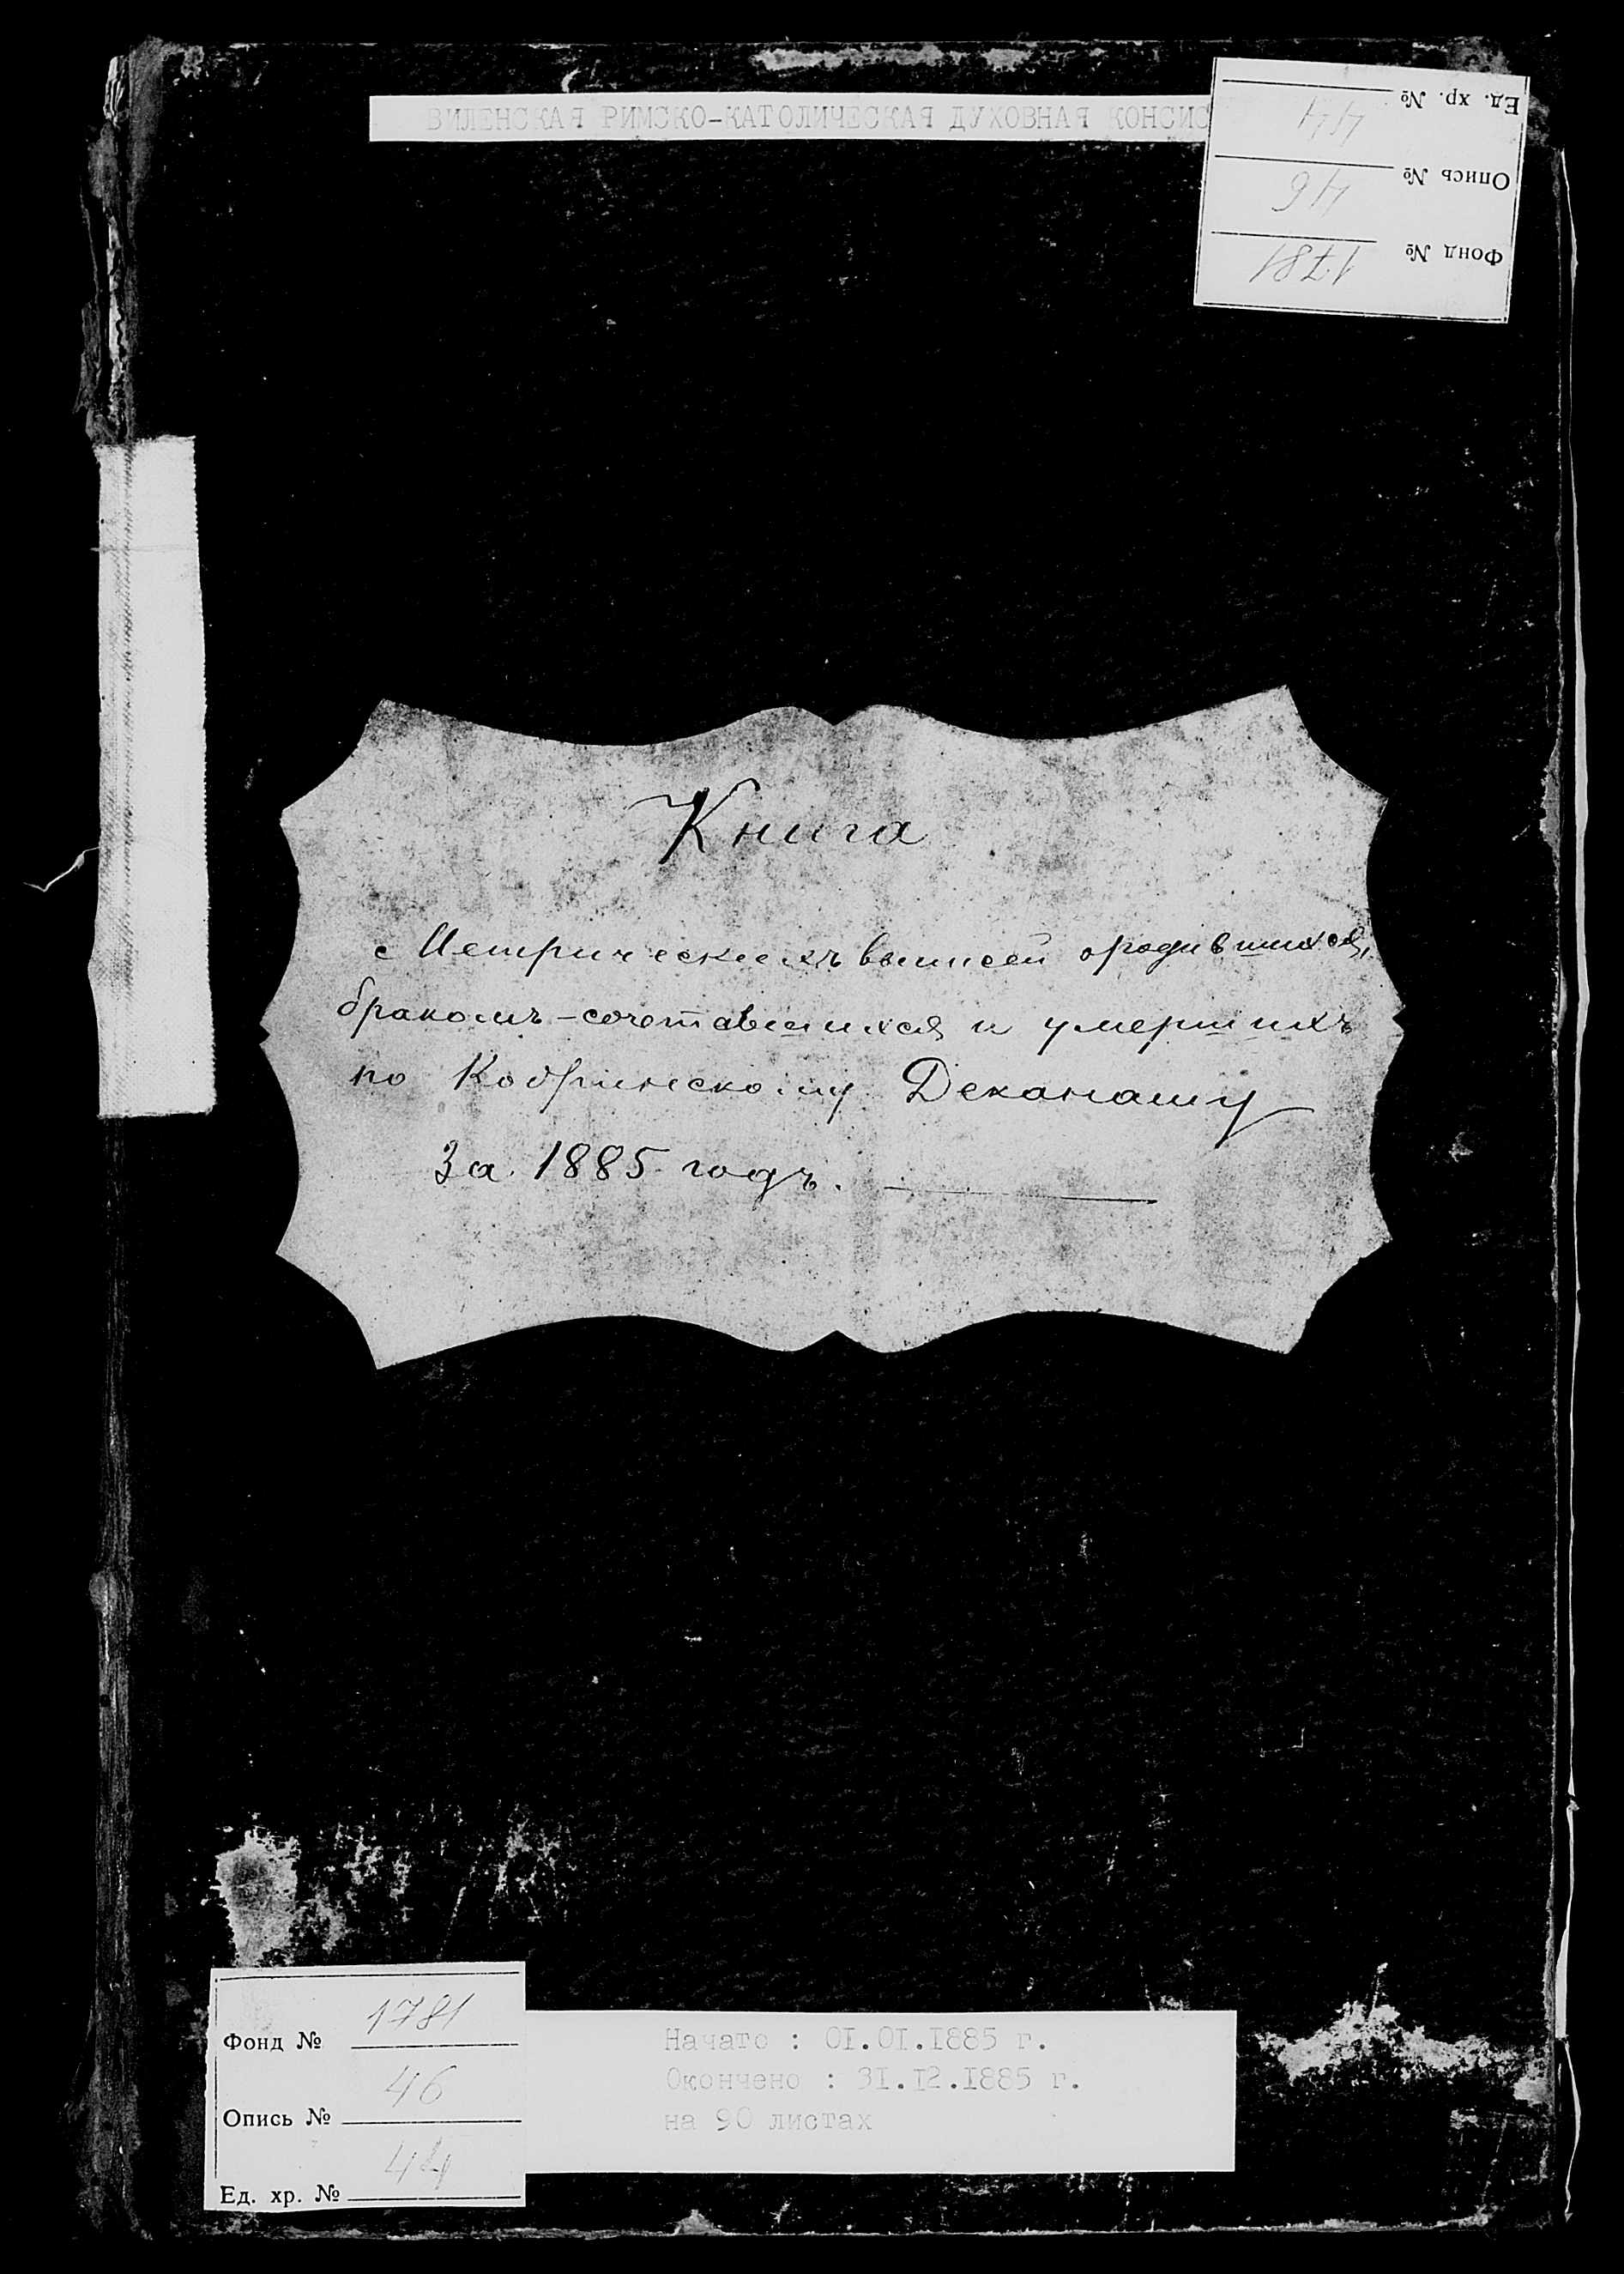 ВИЛЕНСКАЯ РИМСКО-КАТОЛИЧЕСКАЯ ДУХОВНАЯ КОНСИС
Ед. хр. № 44
Опись № 46
Фонд № 1781
Книга
с Метрическихъ выписей о родившихся,
бракомъ-сочетавшихся и умершихъ
по Кобринскому Деканату
За 1885 годъ.
Фонд № 1781
Опись № 46
Ед. хр. № 44
Начато : 01.01.1885 г.
Окончено : 31.12.1885 г.
на 90 листах